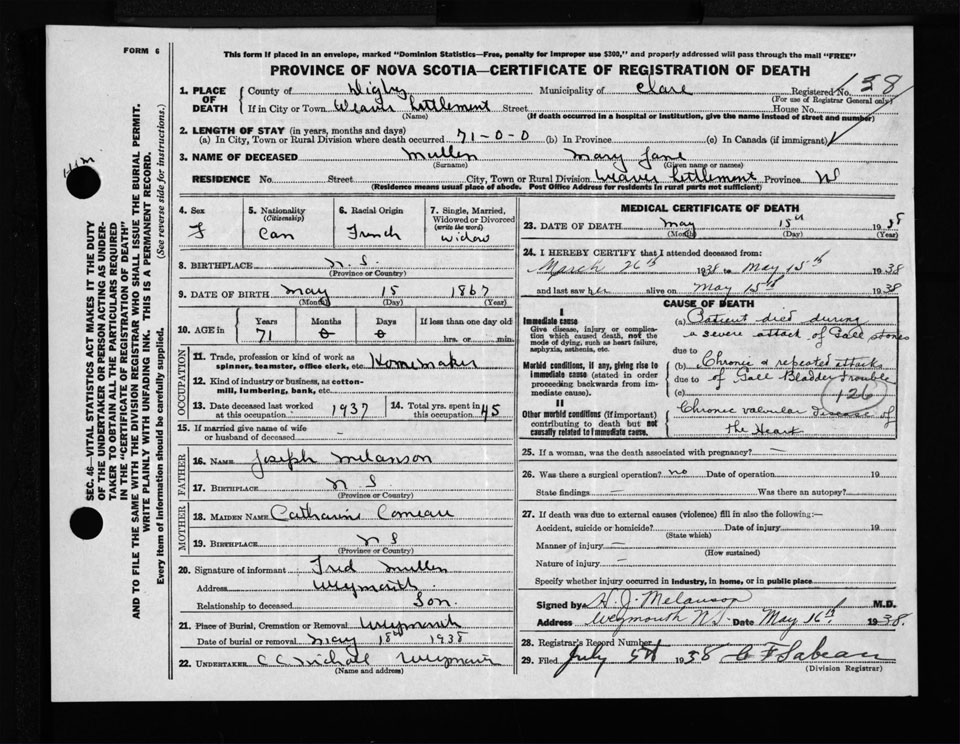 FORM 6
This form if placed in an envelope, marked "Dominion Statistics—Free, penalty for improper use $300," and properly addressed will pass through the mail "FREE"
PROVINCE OF NOVA SCOTIA—CERTIFICATE OF REGISTRATION OF DEATH
158
1. PLACE OF DEATH
County of Digby Municipality of Clare Registered No.
(For use of Registrar General only)
If in City or Town Weaver Settlement Street House No.
(Name) (If death occurred in a hospital or institution, give the name instead of street and number)
2. LENGTH OF STAY (in years, months and days)
(a) In City, Town or Rural Division where death occurred 71-0-0 (b) In Province (c) In Canada (if immigrant)
3. NAME OF DECEASED Mullen Mary Jane
(Surname) (Given name or names)
RESIDENCE No. Street City, Town or Rural Division Weaver Settlement Province NS
(Residence means usual place of abode. Post Office Address for residents in rural parts not sufficient)
4. Sex
F
5. Nationality
(Citizenship)
Can
6. Racial Origin
French
7. Single, Married, Widowed or Divorced
(write the word)
Widow
8. BIRTHPLACE N.S.
(Province or Country)
9. DATE OF BIRTH May 15 1867
(Month) (Day) (Year)
10. AGE in
Years Months Days If less than one day old
71 0 0 hrs. or min.
OCCUPATION
11. Trade, profession or kind of work as spinner, teamster, office clerk, etc. Homemaker
12. Kind of industry or business, as cotton-mill, lumbering, bank, etc.
13. Date deceased last worked at this occupation 1937
14. Total yrs. spent in this occupation 45
15. If married give name of wife or husband of deceased —
FATHER
16. NAME Joseph Melanson
17. BIRTHPLACE N S
(Province or Country)
MOTHER
18. MAIDEN NAME Catharine Comeau
19. BIRTHPLACE N S
(Province or Country)
20. Signature of informant Fred Mullen
Address Weymouth
Relationship to deceased Son.
21. Place of Burial, Cremation or Removal Weymouth
Date of burial or removal May 18th 1938
22. UNDERTAKER Weymouth
(Name and address)
MEDICAL CERTIFICATE OF DEATH
23. DATE OF DEATH May 15th 1938
(Month) (Day) (Year)
24. I HEREBY CERTIFY that I attended deceased from:
March 26th 1938 to May 15th 1938
and last saw her alive on May 15th 1938
CAUSE OF DEATH
I
Immediate cause
Give disease, injury or complication which caused death, not the mode of dying, such as heart failure, asphyxia, asthenia, etc.
(a) Patient died during
a severe attack of Gall stones
due to
Morbid conditions, if any, giving rise to immediate cause (stated in order proceeding backwards from immediate cause).
(b) Chronic & repeated attacks
due to of Gall Bladder Trouble
(c)
126
II
Other morbid conditions (if important) contributing to death but not causally related to immediate cause.
Chronic valvular disease of
the Heart
25. If a woman, was the death associated with pregnancy? —
26. Was there a surgical operation? no Date of operation 19
State findings — Was there an autopsy?
27. If death was due to external causes (violence) fill in also the following:—
Accident, suicide or homicide? Date of injury 19
(State which)
Manner of injury —
(How sustained)
Nature of injury —
Specify whether injury occurred in industry, in home, or in public place
Signed by H. J. Melanson M.D.
Address Weymouth N.S. Date May 16th 1938.
28. Registrar's Record Number
29. Filed July 5th 1938 Sabean
(Division Registrar)
SEC. 46—VITAL STATISTICS ACT MAKES IT THE DUTY
OF THE UNDERTAKER OR PERSON ACTING AS UNDER-
TAKER TO OBTAIN ALL THE PARTICULARS REQUIRED
IN THE "CERTIFICATE OF REGISTRATION OF DEATH"
AND TO FILE THE SAME WITH THE DIVISION REGISTRAR WHO SHALL ISSUE THE BURIAL PERMIT.
WRITE PLAINLY WITH UNFADING INK. THIS IS A PERMANENT RECORD.
Every item of information should be carefully supplied. (See reverse side for instructions.)